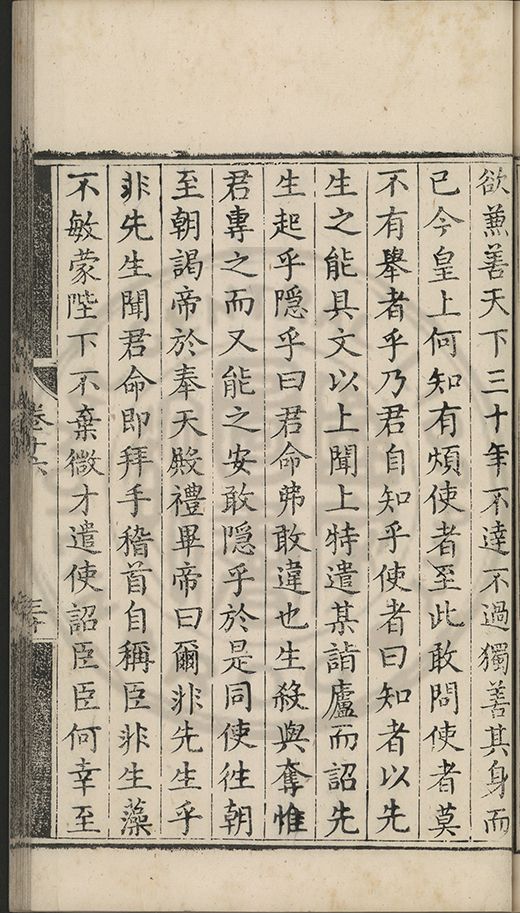 欲蒹善天下三十年不達不過獨善其身而
已今皇上何知有煩使者至此敢問使者莫
不有舉者乎乃君自知乎使者曰知者以先
生之能具文以上聞上特遣某詣廬而詔先
生起乎隱乎曰君命弗敢違也生殺與奪惟
君專之而又能之安敢隱乎於是同使徃朝
至朝謁帝於奉天殿禮畢帝曰爾非先生乎
非先生聞君命即拜手稽首自稱臣非生藻
不敏蒙陛下不棄微才遣使詔臣臣何幸至
卷十六
三十